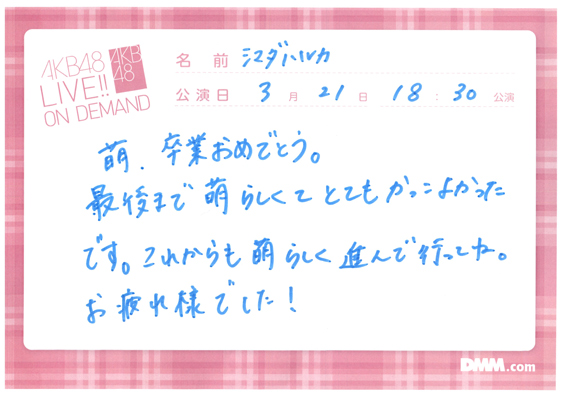 AKB48
LIVE!!
ON DEMAND
AKB
48
名 前 シマダハルカ
公演日 3 月 21 日 18 : 30 公演
萌、卒業おめでとう。
最後まで萌らしくてとてもかっこよかった
です。これからも萌らしく進んで行ってね。
お疲れ様でした！
DMM.com